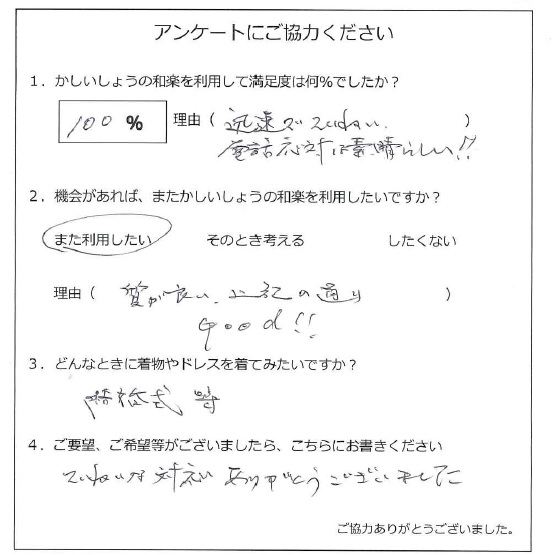 アンケートにご協力ください
1．かしいしょうの和楽を利用して満足度は何％でしたか？
100 ％ 理由（ 迅速でていねい、 ）
電話応対は素晴らしい!!
2．機会があれば、またかしいしょうの和楽を利用したいですか？
また利用したい そのとき考える したくない
理由（ 質が良い、上記の通り ）
good!!
3．どんなときに着物やドレスを着てみたいですか？
結婚式 等
4．ご要望、ご希望等がございましたら、こちらにお書きください
ていねいな対応ありがとうございました
ご協力ありがとうございました。